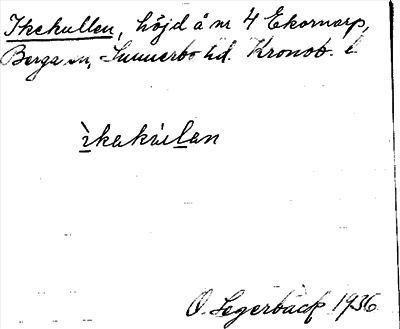 Ikekullen, höjd å nr 4 Ekornarp,
Berga sn, Sunnerbo hd. Kronob. l.
ìkakúlan
O. Segerbäck 1936